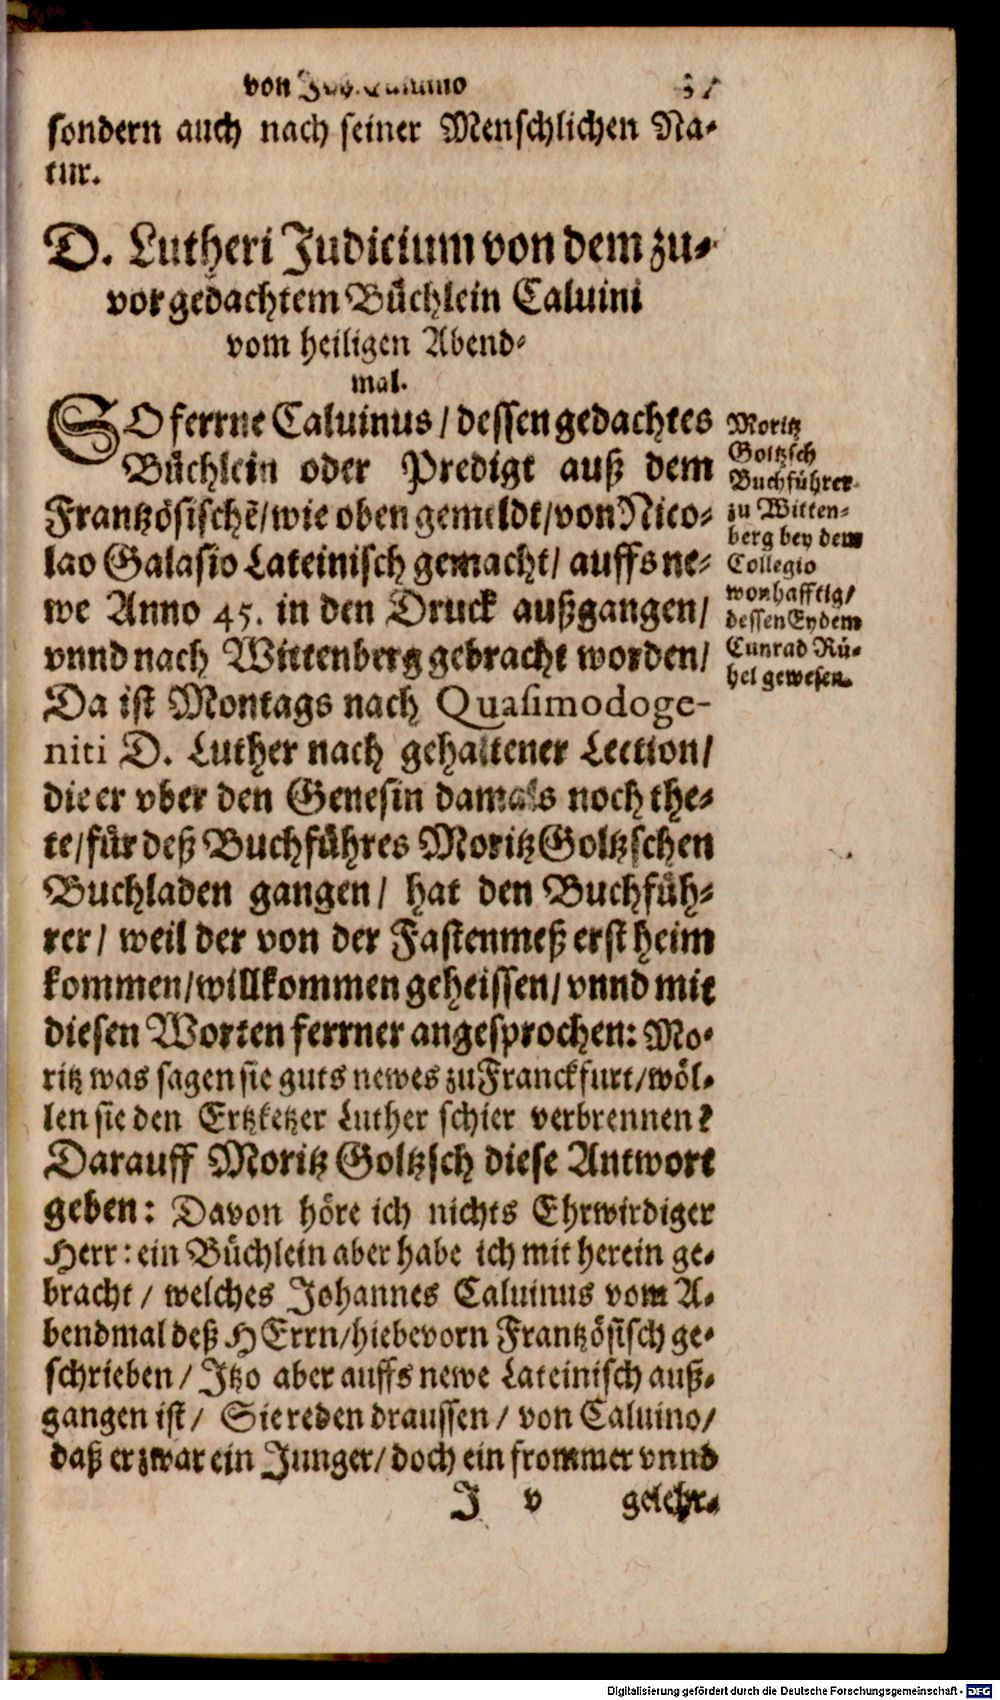 von Joh. Caluino
sondern auch nach seiner Menschlichen Na-
tur.
D. Lutheri Judicium von dem zu-
vor gedachtem Büchlein Caluini
vom heiligen Abend-
mal.
SO ferrne Caluinus / dessen gedachtes
Büchlein oder Predigt auß dem
Frantzösischẽ / wie oben gemeldt / von Nico-
lao Galasio Lateinisch gemacht / auffs ne-
we Anno 45. in den Druck außgangen /
vnnd nach Wittenberg gebracht worden /
Da ist Montags nach Quasimodoge-
niti D. Luther nach gehaltener Lection /
die er vber den Genesin damals noch the-
te / für deß Buchführes Moritz Goltzschen
Buchladen gangen / hat den Buchfüh-
rer / weil der von der Fastenmeß erst heim
kommen / willkommen geheissen / vnnd mit
diesen Worten ferrner angesprochen: Mo-
ritz was sagen sie guts newes zu Franckfurt / wöl-
len sie den Ertzketzer Luther schier verbrennen?
Darauff Moritz Goltzsch diese Antwort
geben: Davon höre ich nichts Ehrwirdiger
Herr: ein Büchlein aber habe ich mit herein ge-
bracht / welches Johannes Caluinus vom A-
bendmal deß HErrn / hiebevorn Frantzösisch ge-
schrieben / Jtzo aber auffs newe Lateinisch auß-
gangen ist / Sie reden draussen / von Caluino /
daß er zwar ein Junger / doch ein frommer vnnd
J v gelehr-
Moritz
Goltzsch
Buchführer
zu Witten-
berg bey dem
Collegio
wonhafftig /
dessen Eydem
Cunrad Rü-
hel gewesen.
Digitalisierung gefördert durch die Deutsche Forschungsgemeinschaft - DFG